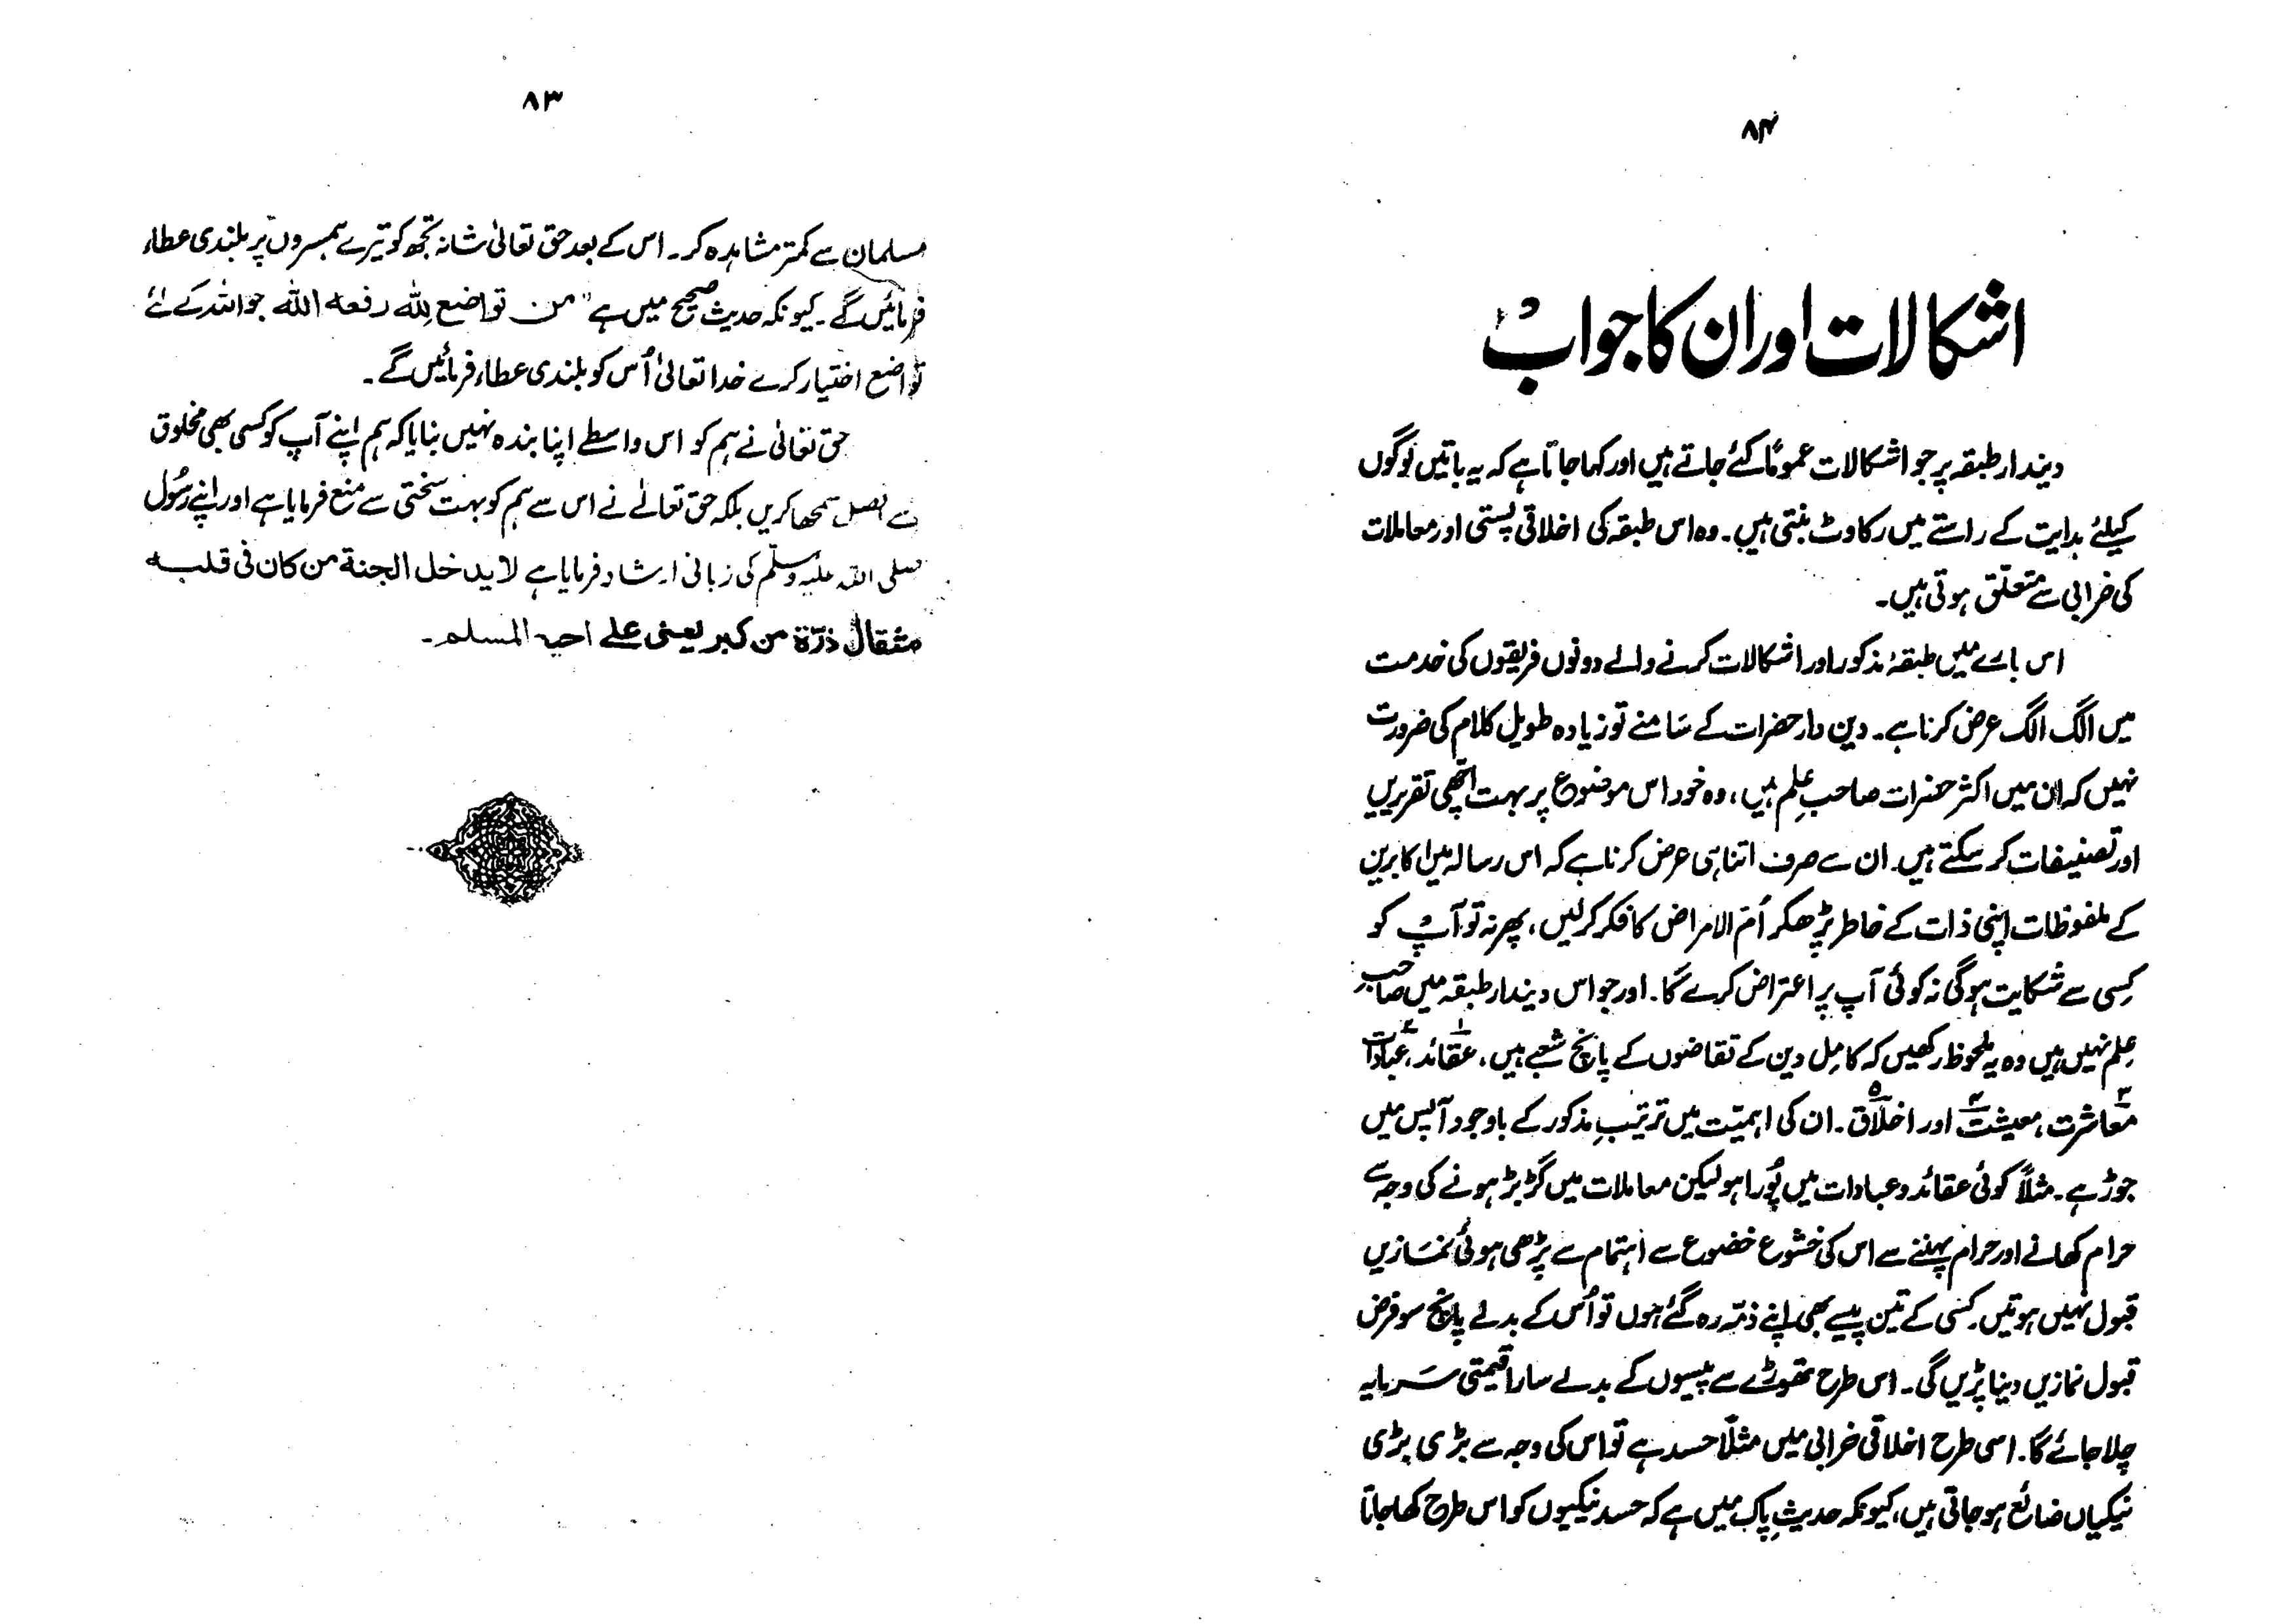 ۸۳
مسلمان سے کمتر مشاہدہ کر۔ اس کے بعد حق تعالیٰ شانہ تجھ کو تیرے ہمسروں پر بلندی عطاء
فرمائیں گے۔ کیونکہ حدیث صحیح میں ہے "من تواضع للہ رفعه اللہ جو اللہ کے لئے
تواضع اختیار کرے خدا تعالیٰ اُس کو بلندی عطاء فرمائیں گے۔
حق تعالیٰ نے ہم کو اس واسطے اپنا بندہ نہیں بنایا کہ ہم اپنے آپ کو کسی بھی مخلوق
سے افضل سمجھا کریں بلکہ حق تعالےٰ نے اس سے ہم کو بہت سختی سے منع فرمایا ہے اور اپنے رسُول
صلی اللہ علیہ وسلّم کی زبانی ارشاد فرمایا ہے لا یدخل الجنة من کان فی قلبه
مثقال ذرّة من کبر یعنی علے اخیہ المسلم۔
۸۴
اشکالات اور ان کا جواب
دیندار طبقہ پر جو اشکالات عموماً کئے جاتے ہیں اور کہا جاتا ہے کہ یہ باتیں لوگوں
کیلئے ہدایت کے راستے میں رکاوٹ بنتی ہیں۔ وہ اس طبقہ کی اخلاقی پستی اور معاملات
کی خرابی سے متعلّق ہوتی ہیں۔
اس بارے میں طبقۂ مذکور اور اشکالات کرنے والے دونوں فریقوں کی خدمت
میں الگ الگ عرض کرنا ہے۔ دین دار حضرات کے سَامنے تو زیادہ طویل کلام کی ضرورت
نہیں کہ ان میں اکثر حضرات صاحبِ علم ہیں، وہ خود اس موضوع پر بہت اچھی تقریریں
اور تصنیفات کر سکتے ہیں۔ ان سے صرف اتنا ہی عرض کرنا ہے کہ اس رسالہ میں اکابرین
کے ملفوظات اپنی ذات کے خاطر پڑھکر اُمّ الامراض کا فکر کرلیں، پھر نہ تو آپ کو
کِسی سے شکایت ہوگی نہ کوئی آپ پر اعتراض کرے گا۔ اور جو اس دیندار طبقہ میں صاحبِ
عِلم نہیں ہیں وہ یہ ملحوظ رکھیں کہ کامِل دین کے تقاضوں کے پانچ شعبے ہیں، عقائد۱، عبادات۲
معاشرت۳، معیشت۴ اور اخلاق۵۔ ان کی اہمیّت میں ترتیبِ مذکور کے باوجود آپس میں
جوڑ ہے۔ مثلاً کوئی عقائد و عبادات میں پُورا ہو لیکن معاملات میں گڑبڑ ہونے کی وجہ سے
حرام کھانے اور حرام پہننے سے اس کی خشوع خضوع سے اہتمام سے پڑھی ہوئی نمَازیں
قبول نہیں ہوتیں۔ کسی کے تین پیسے بھی اپنے ذمّہ رہ گئے ہوں تو اُس کے بدلے پانچ سو فرض
قبول نمازیں دینا پڑیں گی۔ اس طرح تھوڑے سے پیسوں کے بدلے سارا قیمتی سَرمایہ
چلا جائے گا۔ اسی طرح اخلاقی خرابی میں مثلاً حسد ہے تو اس کی وجہ سے بڑی بڑی
نیکیاں ضائع ہو جاتی ہیں، کیونکہ حدیثِ پاک میں ہے کہ حسد نیکیوں کو اس طرح کھا جاتا